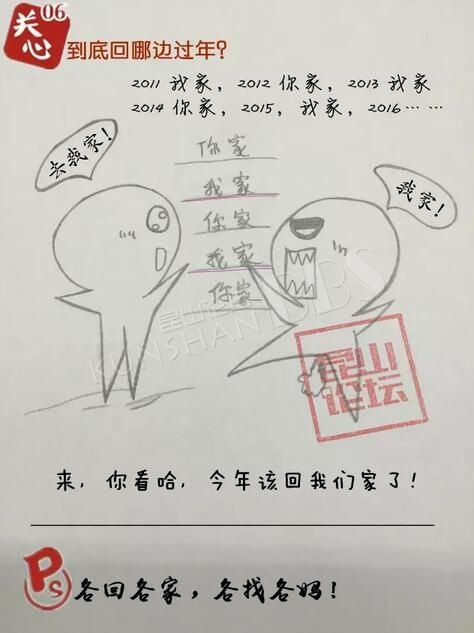 关心 06
到底回哪边过年?
2011 我家, 2012 你家, 2013 我家
2014 你家, 2015, 我家, 2016……
去我家!
你家
我家
你家
我家
你家
我家!
昆山论坛
KUNSHAN BBS
昆山
论坛
来, 你看哈, 今年该回我们家了!
Ps 各回各家, 各找各妈!